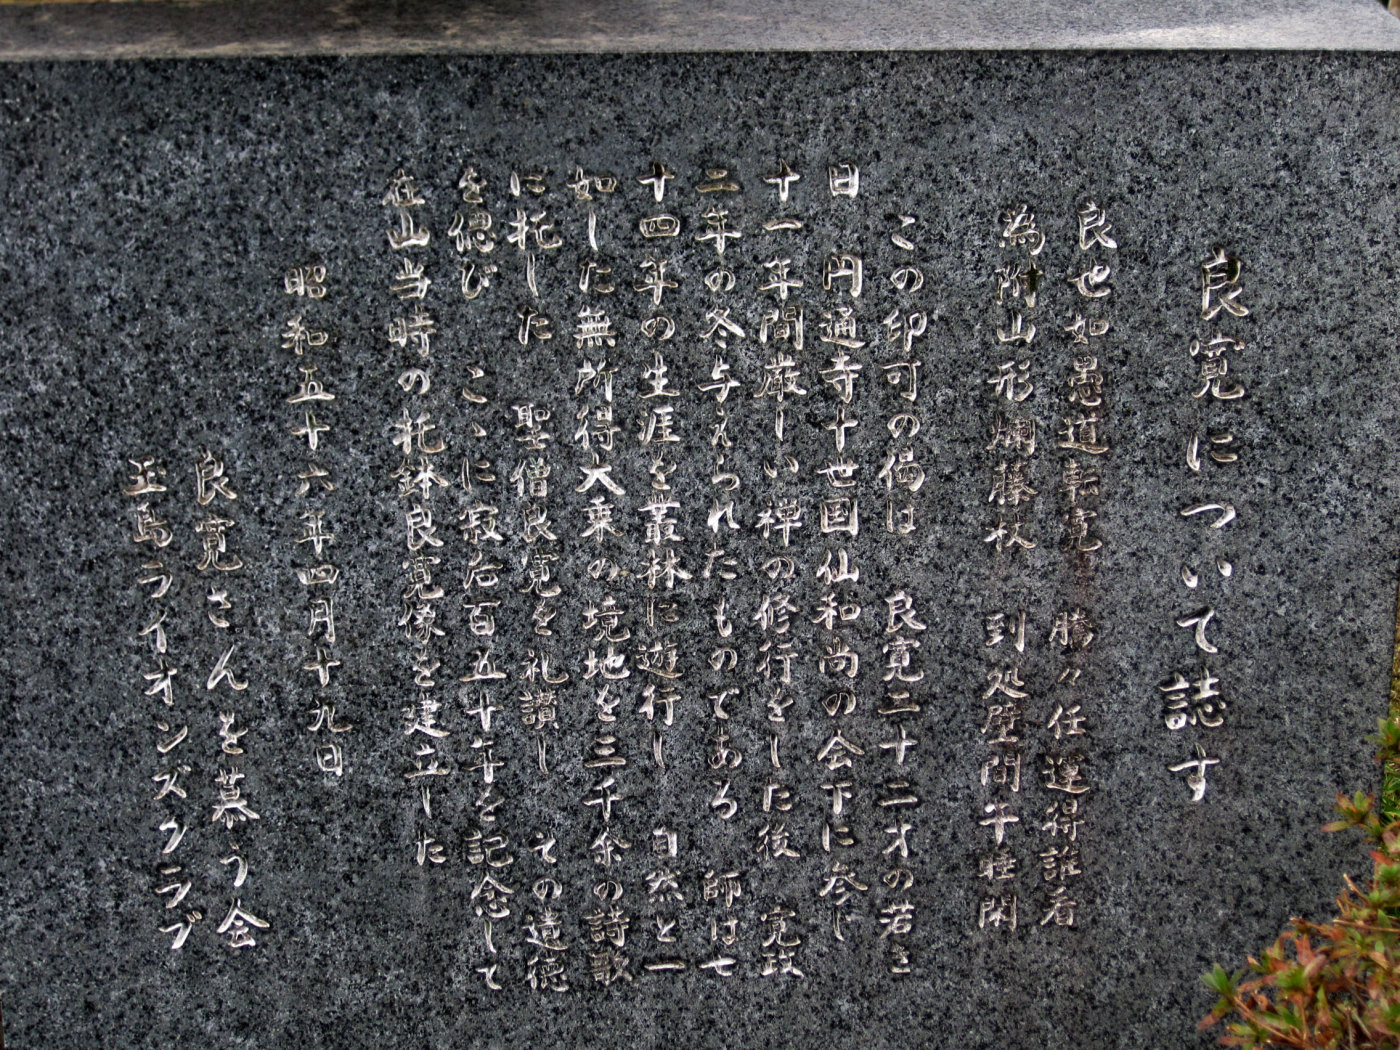 良寛について誌す
良也如愚道転寛　騰々任運得誰看
為附山形爛藤杖　到処壁間午睡閑
この印可の偈は　良寛二十二才の若き
日　円通寺十世国仙和尚の会下に参じ
十一年間厳しい禅の修行をした後　寛政
二年の冬与えられたものである　師は七
十四年の生涯を叢林に遊行し　自然と一
如した無所得大乗の境地を三千余の詩歌
に托した　聖僧良寛を礼讃し　その遺徳
を偲び　こゝに寂后百五十年を記念して
在山当時の托鉢良寛像を建立した
昭和五十六年四月十九日
良寛さんを慕う会
玉島ライオンズクラブ